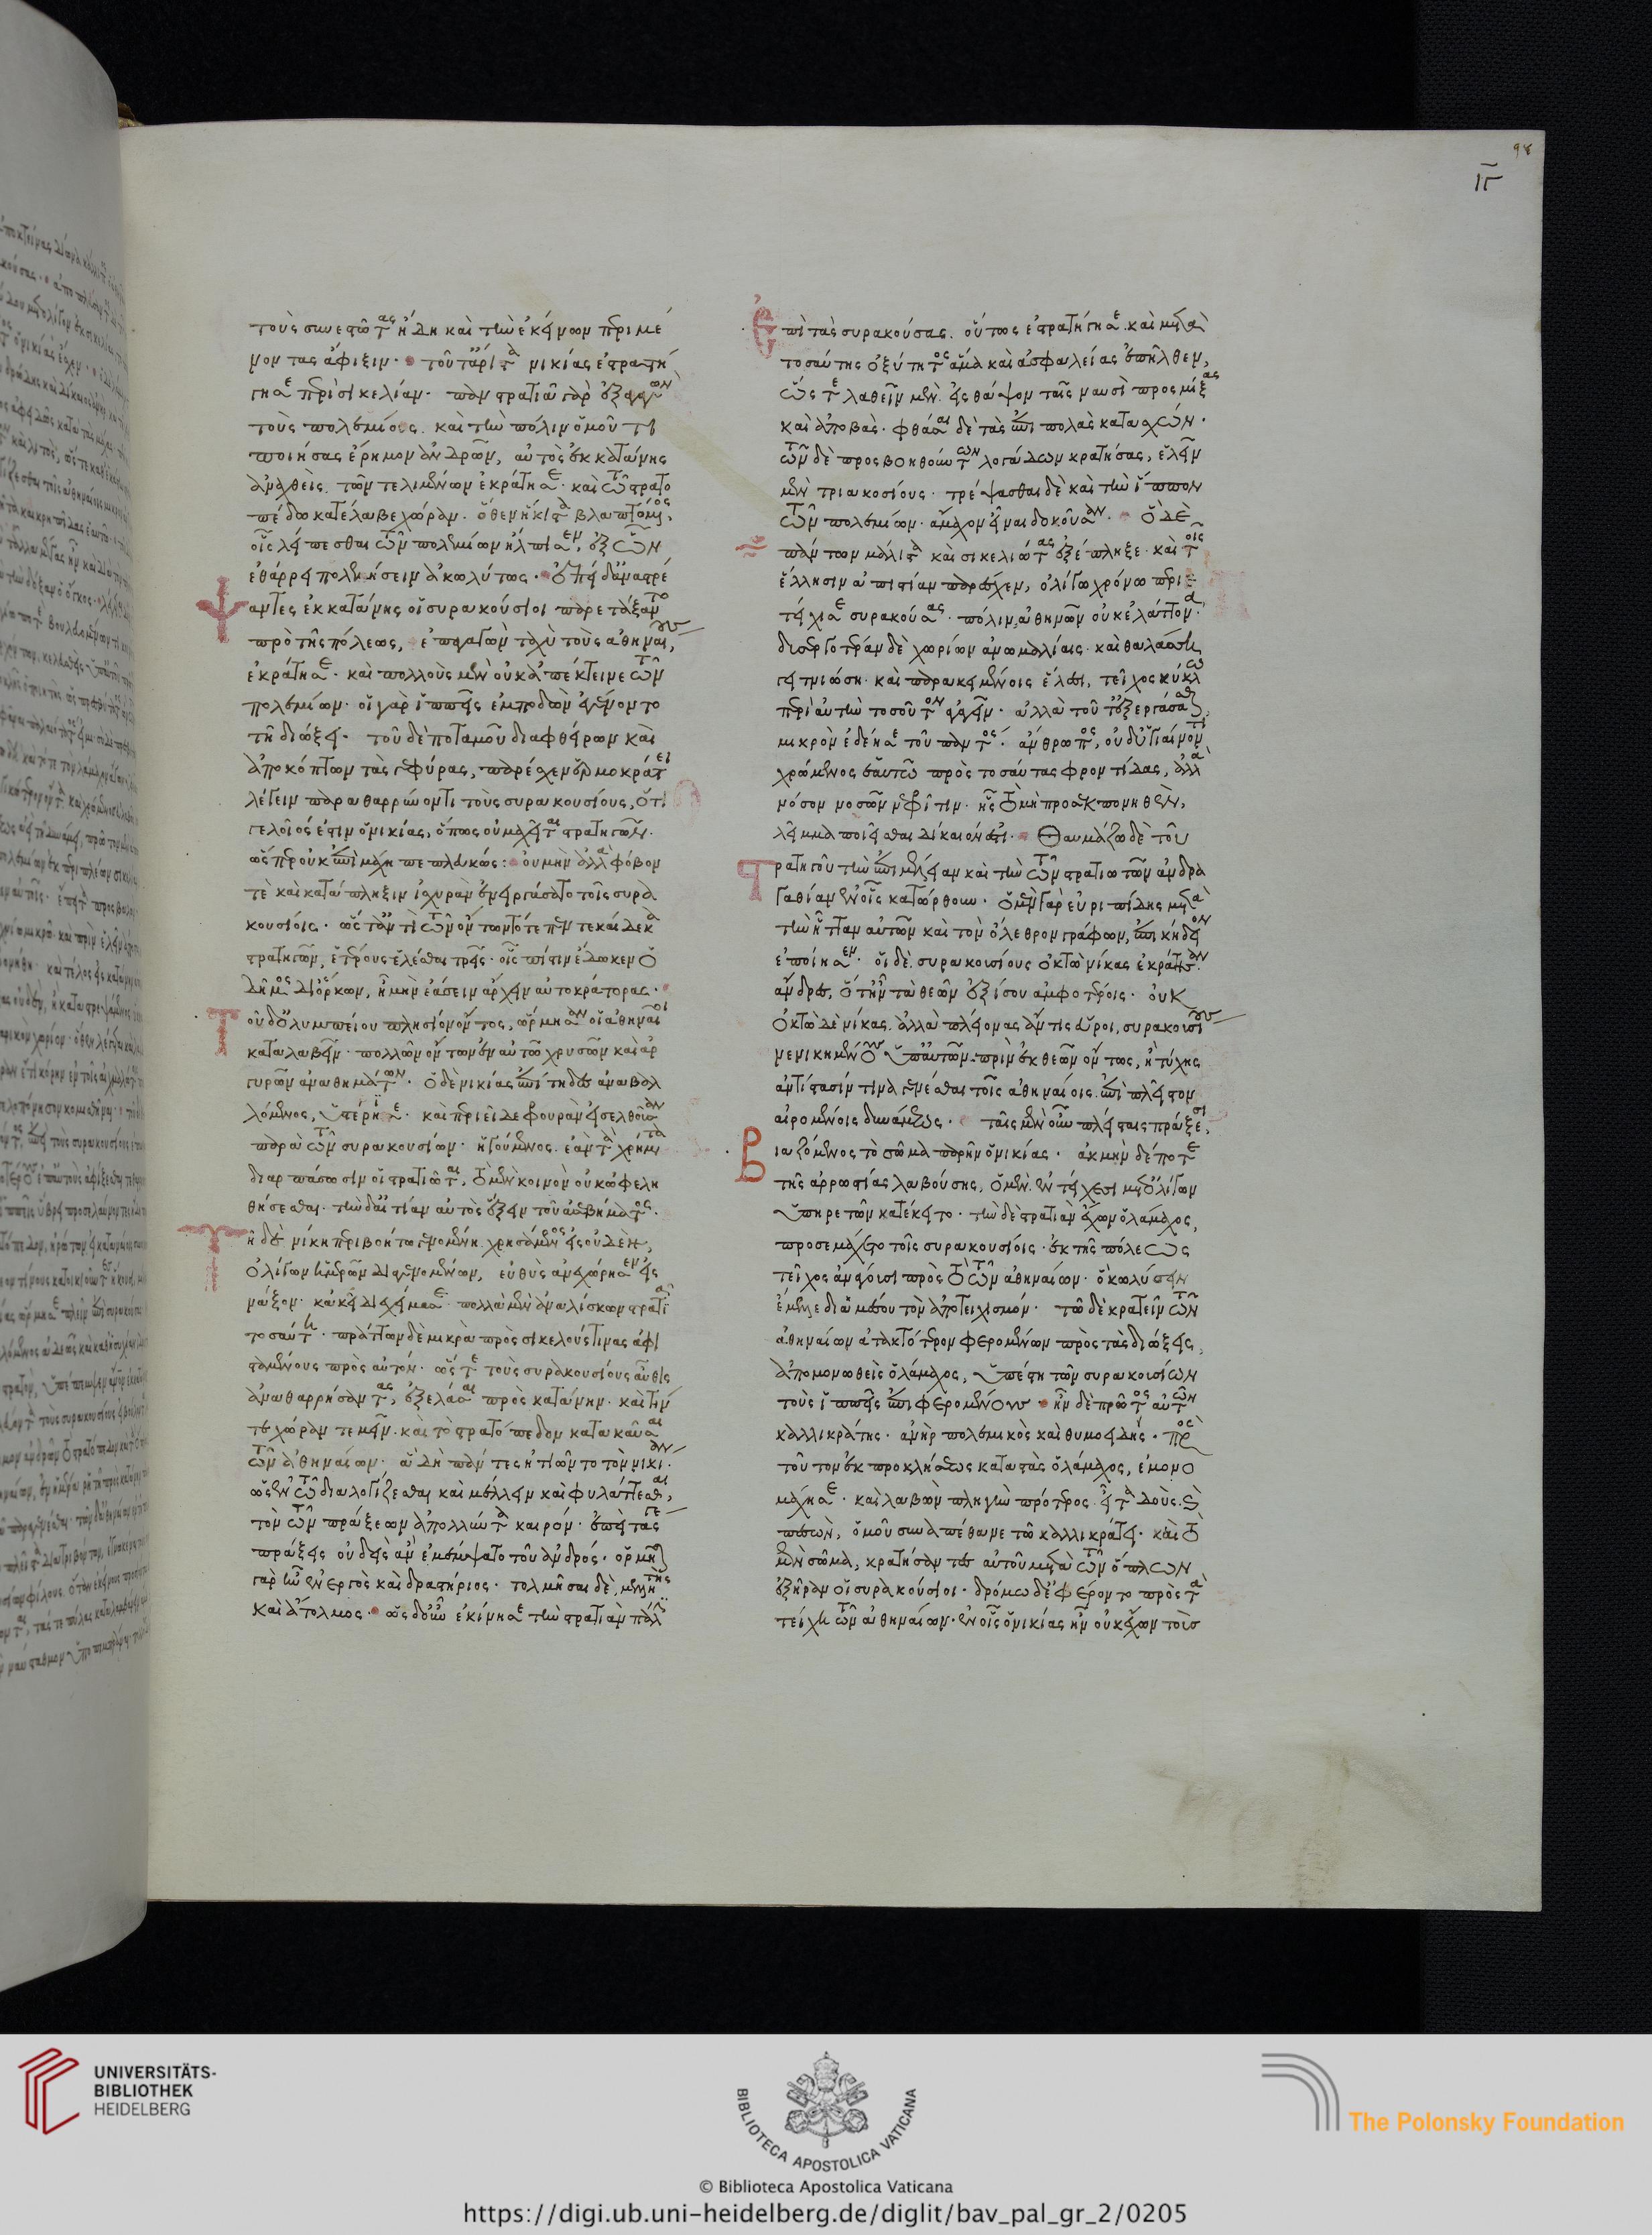 τοὺς συνεστῶτας ἤδη καὶ τὴν ἐκείνων περιμέ
νοντας ἄφιξιν· τοῦτ' ἄριστα νικίας ἐστρατή
γησε περὶ σικελίαν· πανστρατιᾶ γὰρ ἐξαγαγὼν
τοὺς πολεμίους. καὶ τὴν πόλιν ὁμοῦ τι
ποιήσας ἔρημον ἀνδρῶν, αὐτὸς ἐκ κατάνης
ἀναχθεὶς. τῶν τε λιμένων ἐκράτησε· καὶ τῶ στρατο
πέδω κατέλαβε χώραν. ὅθεν ἥκιστα βλαπτόμενος,
οἷς λείπεσθαι τῶν πολεμίων ἤλπισεν, ἐξ ὧν
ἐθάρρει πολεμήσειν ἀκωλύτως. ἐπεὶ δ' ἀναστρέ
ψαντες ἐκ κατάνης οἱ συρακούσιοι παρετάξαντο
πρὸ τῆς πόλεως, ἐπαγαγὼν ταχὺ τοὺς ἀθηναίους,
ἐκράτησε· καὶ πολλοὺς μὲν οὐκ ἀπέκτεινε τῶν
πολεμίων· οἱ γὰρ ἱππεῖς ἐμποδὼν ἐγένοντο
τῆ διώξει· τοῦ δὲ ποταμοῦ διαφθείρων καὶ
ἀποκόπτων τὰς γεφύρας, παρέσχεν ἑρμοκράτει
λέγειν παραθαρρύνοντι τοὺς συρακουσίους, ὅτι
γελοῖός ἐστιν ὁ νικίας, ὅπως οὐ μαχεῖται στρατηγῶν.
ὥσπερ οὐκ ἐπὶ μάχη πεπλευκώς: οὐ μὴν ἀλλὰ φόβον
τὲ καὶ κατάπληξιν ἰσχυρὰν ἐνειργάσατο τοῖς συρα
κουσίοις· ὥστ' ἀντὶ τῶν ὄντων τότε πεντεκαίδεκα
στρατηγῶν, ἑτέρους ἑλέσθαι τρεῖς· οἷς πίστιν ἔδωκεν ὁ
δῆμος δι' ὅρκων, ἦ μὴν ἐάσειν ἄρχειν αὐτοκράτορας.
Τοῦ δ' ὀλυμπείου πλησίον ὄντος, ὥρμησαν οἱ ἀθηναῖοι
καταλαβεῖν· πολλῶν ὄντων ἐν αὐτῶ χρυσῶν καὶ ἀρ
γυρῶν ἀναθημάτων· ὁ δὲ νικίας ἐπίτηδες ἀναβαλ
λόμενος, ὑστέρησε· καὶ περιεῖδε φρουρὰν εἰσελθοῦσαν
παρὰ τῶν συρακουσίων· ἡγούμενος. ἐὰν τὰ χρήματα
διαρπάσωσιν οἱ στρατιῶται, τὸ μὲν κοινὸν οὐκ ὠφελη
θήσεσθαι· τὴν δ' αἰτίαν αὐτὸς ἕξειν τοῦ ἀσεβήματος.
Τῆ δὲ νίκη περιβοήτω γενομένη χρησάμενος εἰς οὐδέν,
ὀλίγων ἡμερῶν διαγενομένων, εὐθὺς ἀνεχώρησεν εἰς
νάξον· κἀκεῖ διεχείμασε· πολλὰ μὲν ἀναλίσκων στρατιᾶ
τοσαύτη· πράττων δὲ μικρὰ πρὸς σικελούς τινας ἀφι
σταμένους πρὸς αὐτόν· ὥστε τοὺς συρακουσίους αὖθις
ἀναθαρρήσαντας, ἐξελάσαι πρὸς κατάνην· καὶ τήν
τε χώραν τεμεῖν· καὶ τὸ στρατόπεδον κατακαῦσαι
τῶν ἀθηναίων· ἃ δὴ πάντες ἠτιῶντο τὸν νικίαν·
ὡς ἐν τῶ διαλογίζεσθαι καὶ μέλλειν καὶ φυλάττεσθαι,
τὸν τῶν πράξεων ἀπολλύντα καιρόν· ἐπεὶ τάς γε
πράξεις οὐδεὶς ἂν ἐμέμψατο τοῦ ἀνδρός· ὁρμήσας
γὰρ ἦν ἐνεργὸς καὶ δραστήριος· τολμῆσαι δὲ, μελλητὴς
καὶ ἄτολμος· ὡς δ' οὖν ἐκίνησε τὴν στρατιὰν πάλιν
Ἐπὶ τὰς συρακούσας. οὕτως ἐστρατήγησε καὶ μετὰ
τοσαύτης ὀξύτητος ἅμα καὶ ἀσφαλείας ἐπῆλθεν,
ὥστε λαθεῖν μὲν εἰς θάψον ταῖς ναυσὶ προσμίξας
καὶ ἀποβάς· φθάσαι δὲ τὰς ἐπιπολὰς κατασχών·
τῶν δὲ προσβοηθούντων λογάδων κρατήσας, ἑλεῖν
μὲν τριακοσίους· τρέψασθαι δὲ καὶ τὴν ἵππον
τῶν πολεμίων· ἄμαχον εἶναι δοκοῦσαν· ὃ δὲ
πάντων μάλιστα καὶ σικελιώτας ἐξέπληξε· καὶ τοῖς
ἕλλησιν ἀπιστίαν παρέσχεν, ὀλίγω χρόνω περιε
τείχισε συρακούσας· πόλιν ἀθηνῶν οὐκ ἐλάττονα·
δυσεργοτέραν δὲ χωρίων ἀνωμαλίαις· καὶ θαλάσση
γειτνιώση· καὶ παρακειμένοις ἕλεσι, τεῖχος κύκλω
περὶ αὐτὴν τοσοῦτον ἀγαγεῖν· ἀλλὰ τοῦτ' ἐξεργάσασθαι,
μικρὸν ἐδέησε τοῦ παντός· ἄνθρωπος, οὐδ' ὑγιαίνοντι
χρώμενος ἑαυτῶ πρὸς τοσαύτας φροντίδας, ἀλλὰ
νόσον νοσῶν νεφρῖτιν· ἧς τὸ μὴ προσεκπονηθὲν,
λεῖμμα ποιεῖσθαι δίκαιόν ἐστι· Θαυμάζω δὲ τοῦ
στρατηγοῦ τὴν ἐπιμέλειαν καὶ τὴν τῶν στρατιωτῶν ἀνδρα
γαθίαν ἐν οἷς κατώρθουν· ὁ μὲν γὰρ εὐριπίδης μετὰ
τὴν ἧτταν αὐτῶν καὶ τὸν ὄλεθρον γράφων, ἐπικήδειον
ἐποίησεν· οἵδε συρακοσίους ὀκτὼ νίκας ἐκράτησαν
ἄνδρες, ὅτ' ἦν τὰ θεῶν ἐξ ἴσου ἀμφοτέροις· οὐκ
ὀκτὼ δὲ νίκας, ἀλλὰ πλείονας ἄν τις εὕροι, συρακουσίους
νενικημένους ὑπ' αὐτῶν· πρὶν ἐκ θεῶν ὄντως, ἢ τύχης
ἀντίστασίν τινα γενέσθαι τοῖς ἀθηναίοις. ἐπὶ πλεῖστον
αἰρομένοις δυνάμεως· ταῖς μὲν οὖν πλείσταις πράξεσι,
Βιαζόμενος τὸ σῶμα παρῆν ὁ νικίας· ἀκμὴν δέ ποτε
τῆς ἀρρωστίας λαβούσης, ὁ μὲν ἐν τείχεσι μετ' ὀλίγων
ὑπηρετῶν κατέκειτο· τὴν δὲ στρατιὰν ἔχων ὁ λάμαχος,
προσεμάχετο τοῖς συρακουσίοις· ἐκ τῆς πόλεως
τεῖχος ἀνάγουσι πρὸς τὸ τῶν ἀθηναίων· ὃ κωλύσειν
ἔμελλε διὰ μέσου τὸν ἀποτειχισμόν· τῶ δὲ κρατεῖν τῶν
ἀθηναίων ἀτακτότερον φερομένων πρὸς τὰς διώξεις,
ἀπομονωθεὶς ὁ λάμαχος, ὑπέστη τῶν συρακουσίων
τοὺς ἱππεῖς ἐπιφερομένους· ἦν δὲ πρῶτος αὐτῶν
καλλικράτης· ἀνὴρ πολεμικὸς καὶ θυμοειδής· πρὸς
τοῦτον ἐκ προκλήσεως καταστὰς ὁ λάμαχος, ἐμονο
μάχησε· καὶ λαβὼν πληγὴν πρότερος· εἶτα δοὺς καὶ
πεσὼν, ὁμοῦ συναπέθανε τῶ καλλικράτει· καὶ τὸ
μὲν σῶμα, κρατήσαντες αὐτοῦ μετὰ τῶν ὅπλων
ἐξῆραν οἱ συρακούσιοι· δρόμω δ' ἐφέροντο πρὸς τὰ
τείχη τῶν ἀθηναίων· ἐν οἷς ὁ νικίας ἦν οὐκ ἔχων τοὺσ
© Biblioteca Apostolica Vaticana
https://digi.ub.uni-heidelberg.de/diglit/bav_pal_gr_2/0205
UNIVERSITÄTS-
BIBLIOTHEK
HEIDELBERG
BIBLIOTECA APOSTOLICA VATICANA
The Polonsky Foundation